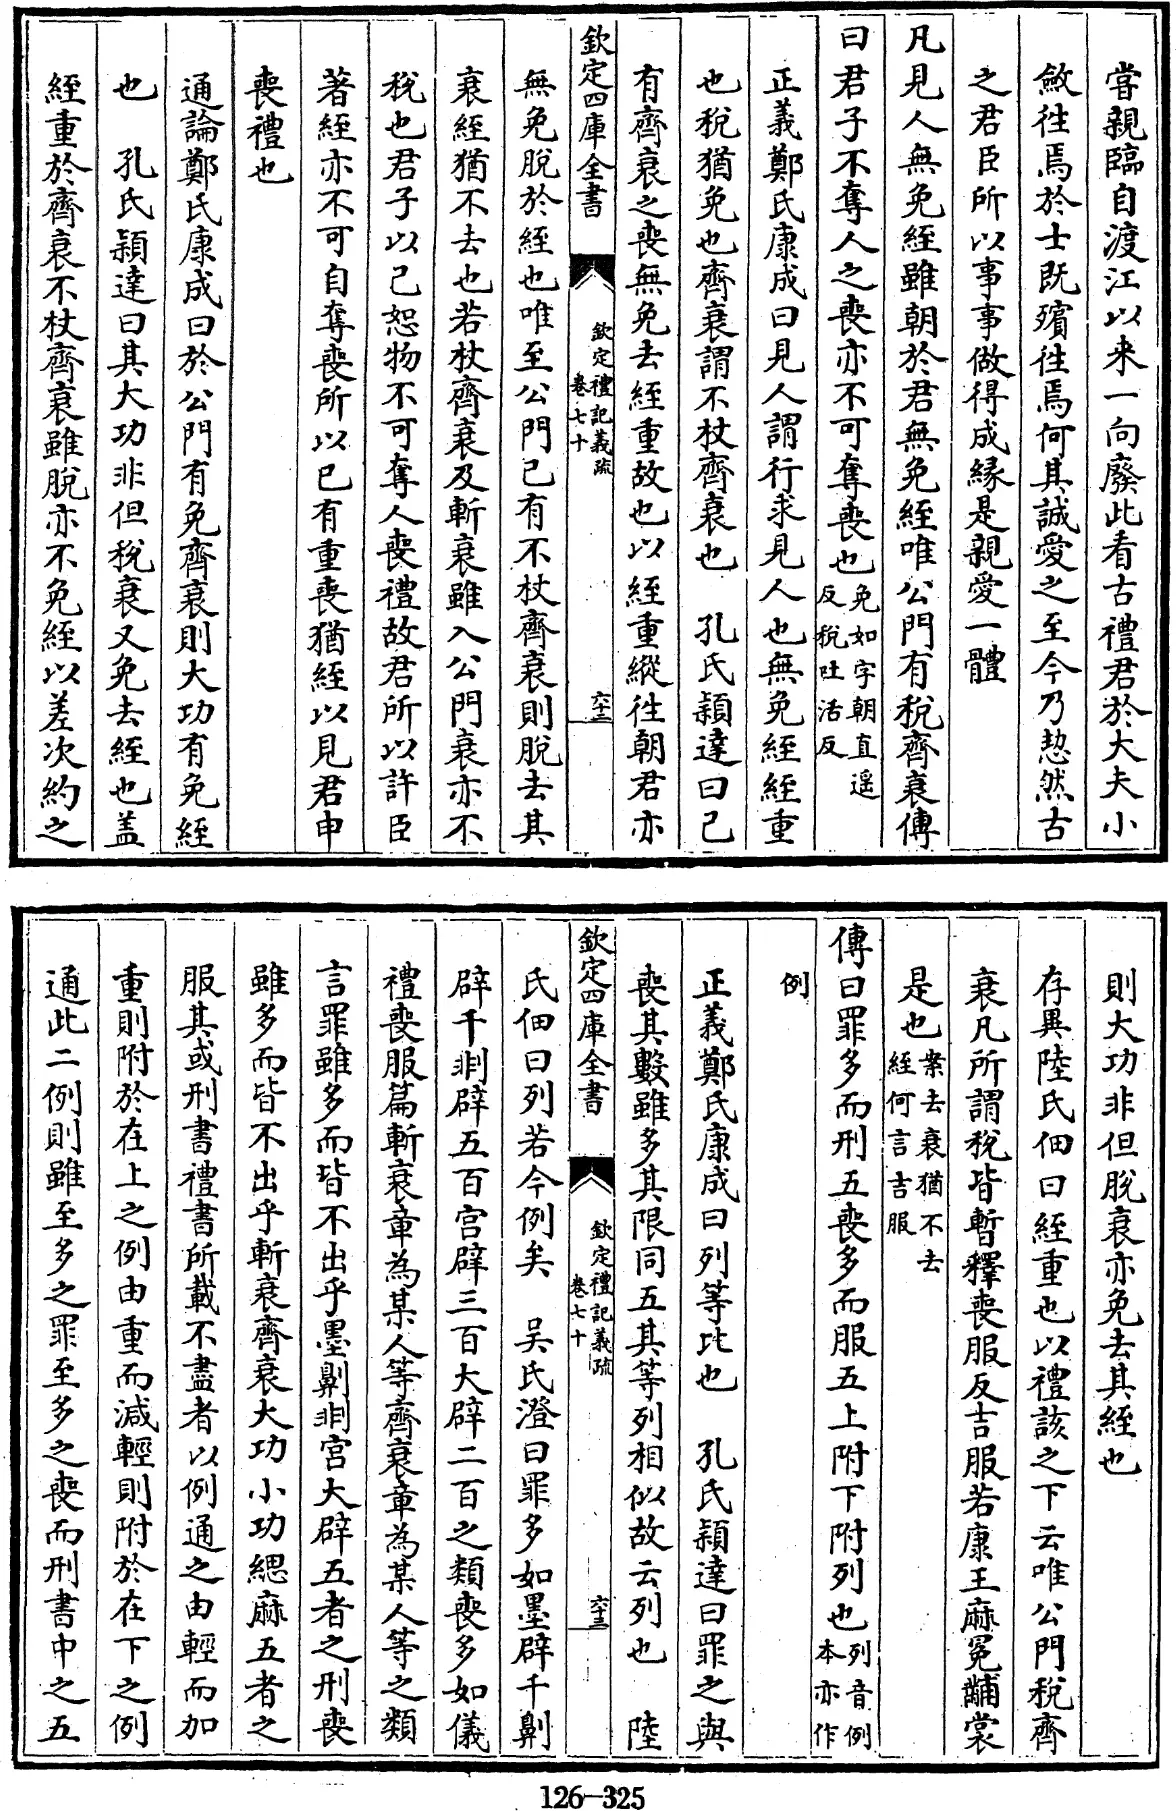 嘗親臨自渡江以来一向廢此看古禮君於大夫小
斂往焉於士既殯往焉何其誠愛之至今乃恝然古
之君臣所以事事做得成緣是親愛一體
凡見人無免絰雖朝於君無免絰唯公門有稅齊衰傳
曰君子不奪人之喪亦不可奪喪也免如字朝直遥
反稅吐活反
正義鄭氏康成曰見人謂行求見人也無免絰絰重
也稅猶免也齊衰謂不杖齊衰也 孔氏穎達曰已
有齊衰之喪無免去絰重故也以絰重縱往朝君亦
欽定四庫全書
欽定禮記義疏
卷七十
六十二
無免脫於絰也唯至公門已有不杖齊衰則脫去其
衰絰猶不去也若杖齊衰及斬衰雖入公門衰亦不
稅也君子以己恕物不可奪人喪禮故君所以許臣
著絰亦不可自奪喪所以已有重喪猶絰以見君申
喪禮也
通論鄭氏康成曰於公門有免齊衰則大功有免絰
也 孔氏穎達曰其大功非但稅衰又免去絰也盖
絰重於齊衰不杖齊衰雖脫亦不免絰以差次約之
則大功非但脫衰亦免去其絰也
存異陸氏佃曰絰重也以禮該之下云唯公門稅齊
衰凡所謂稅皆暫釋喪服反吉服若康王麻冕黼裳
是也案去衰猶不去
絰何言吉服
傳曰罪多而刑五喪多而服五上附下附列也列音例
本亦作
例
正義鄭氏康成曰列等比也 孔氏穎達曰罪之與
喪其數雖多其限同五其等列相似故云列也 陸
欽定四庫全書
欽定禮記義疏
卷七十
六十三
氏佃曰列若今例矣 吴氏澄曰罪多如墨辟千劓
辟千剕辟五百宫辟三百大辟二百之類喪多如儀
禮喪服篇斬衰章為某人等齊衰章為某人等之類
言罪雖多而皆不出乎墨劓剕宫大辟五者之刑喪
雖多而皆不出乎斬衰齊衰大功小功緦麻五者之
服其或刑書禮書所載不盡者以例通之由輕而加
重則附於在上之例由重而減輕則附於在下之例
通此二例則雖至多之罪至多之喪而刑書中之五
126-325